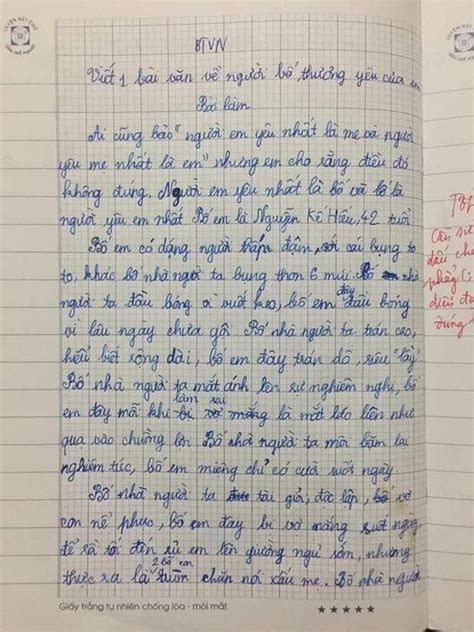 BTVN
Viết 1 bài văn về người bố thương yêu của em
Bài làm
Ai cũng bảo "người em yêu nhất là mẹ và người
yêu mẹ nhất là em" nhưng em cho rằng điều đó
không đúng. Người em yêu nhất là bố và bố là
người yêu em nhất. Bố em là Nguyễn Kế Hiếu, 42 tuổi.
Bố em có dáng người thấp đậm, với cái bụng to
to, khác bố nhà người ta bụng thon 6 múi. Bố nhà
người ta đầu bóng vì vuốt keo, bố em đây đầu bóng
vì lâu ngày chưa gội. Bố nhà người ta trán cao,
hiểu biết rộng dài, bố em đây trán dô, siêu lầy.
Bố nhà người ta mắt ánh lên sự nghiêm nghị, bố
em đây mỗi khi làm sai bị vợ mắng là mắt láo liên như
qua vào chuồng lợn. Bố nhà người ta môi bặm lại
nghiêm túc, bố em miệng chỉ có cười suốt ngày.
Bố nhà người ta tài giỏi, độc lập, vợ
con nể phục, bố em đây bị vợ mắng suốt ngày
để rồi tối đến rủ em lên giường ngủ sớm, nhưng
thực ra là 2 bố con trùm chăn nói xấu mẹ. Bố nhà người
Giấy trắng tự nhiên chống lóa - mỏi mắt
Câu sử
dấu